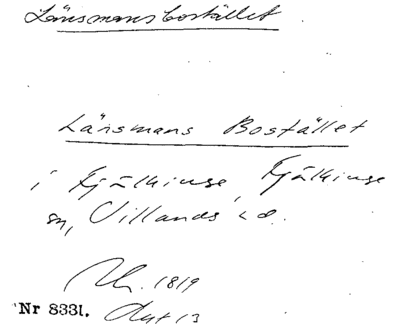 Länsmansbostället
Länsmans Bostället
i Fjälkinge, Fjälkinge
sn, Villands hd.
Uh. 1819
Nr 8331. Avt 13